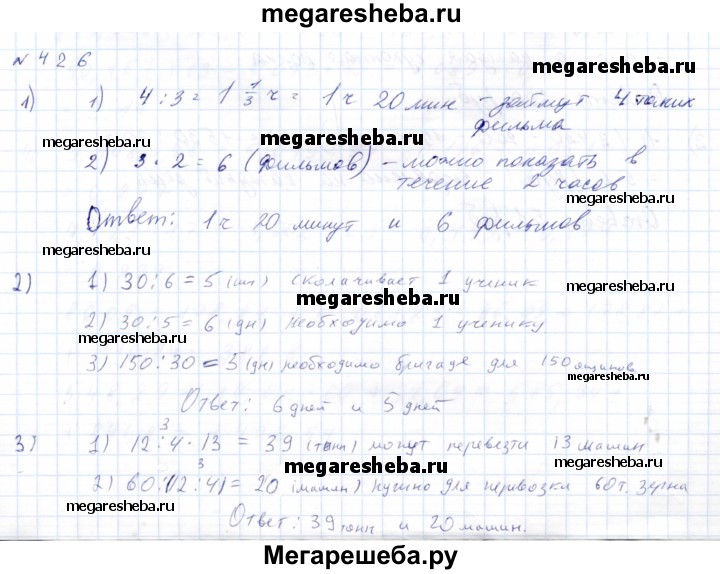 megaresheba.ru
№ 426
megaresheba.ru
1) 1) 4 : 3 = 1 1/3 ч = 1 ч 20 мин - займут 4 таких
фильма
megaresheba.ru
megaresheba.ru
2) 3 · 2 = 6 (фильмов) - можно показать в
течение 2 часов
megaresheba.ru
Ответ: 1 ч 20 минут и 6 фильмов
megaresheba.ru
2) 1) 30 : 6 = 5 (шт) сколачивает 1 ученик
megaresheba.ru
megaresheba.ru
2) 30 : 5 = 6 (дн) необходимо 1 ученику
megaresheba.ru
3) 150 : 30 = 5 (дн) необходимо бригаде для 150 ящиков
megaresheba.ru
Ответ: 6 дней и 5 дней
3
3) 1) 12 : 4 · 13 = 39 (тонн) могут перевезти 13 машин
megaresheba.ru
megaresheba.ru
3
2) 60 : (12 : 4) = 20 (машин) нужно для перевозки 60 т. зерна
megaresheba.ru
megaresheba.ru
Ответ: 39 тонн и 20 машин.
Мегарешеба.ру